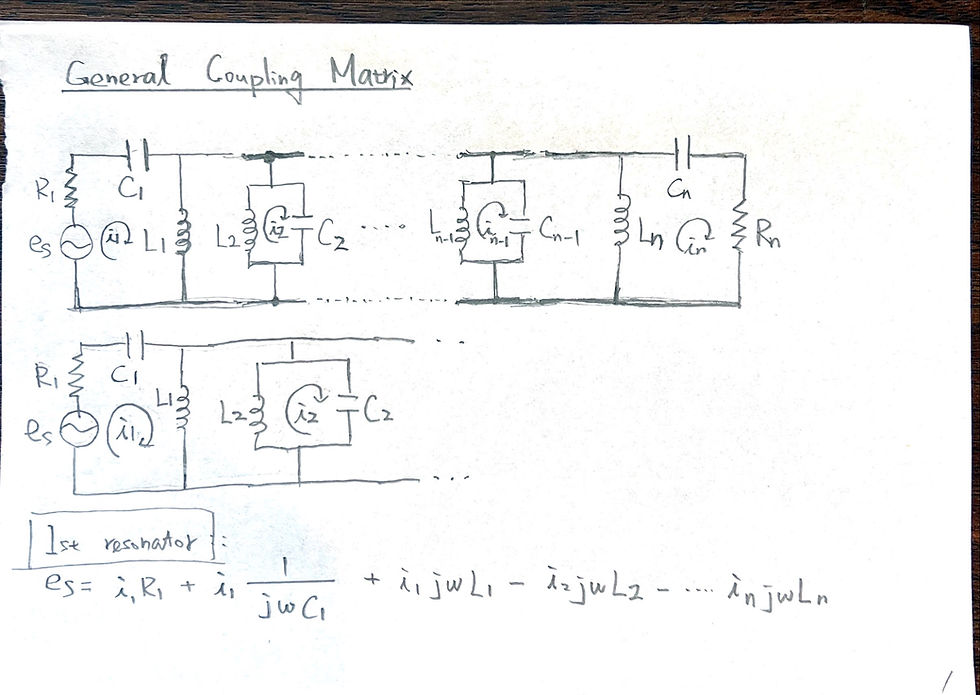 General Coupling Matrix
C1 Cn
R1 es i1 L1 L2 i2 C2 .... Ln-1 in-1 Cn-1 Ln in Rn
R1 C1 L1
es i1 L2 i2 C2 ...
1st resonator :
es = i1R1 + i1 1/jωC1 + i1jωL1 - i2jωL2 - .... injωLn
1